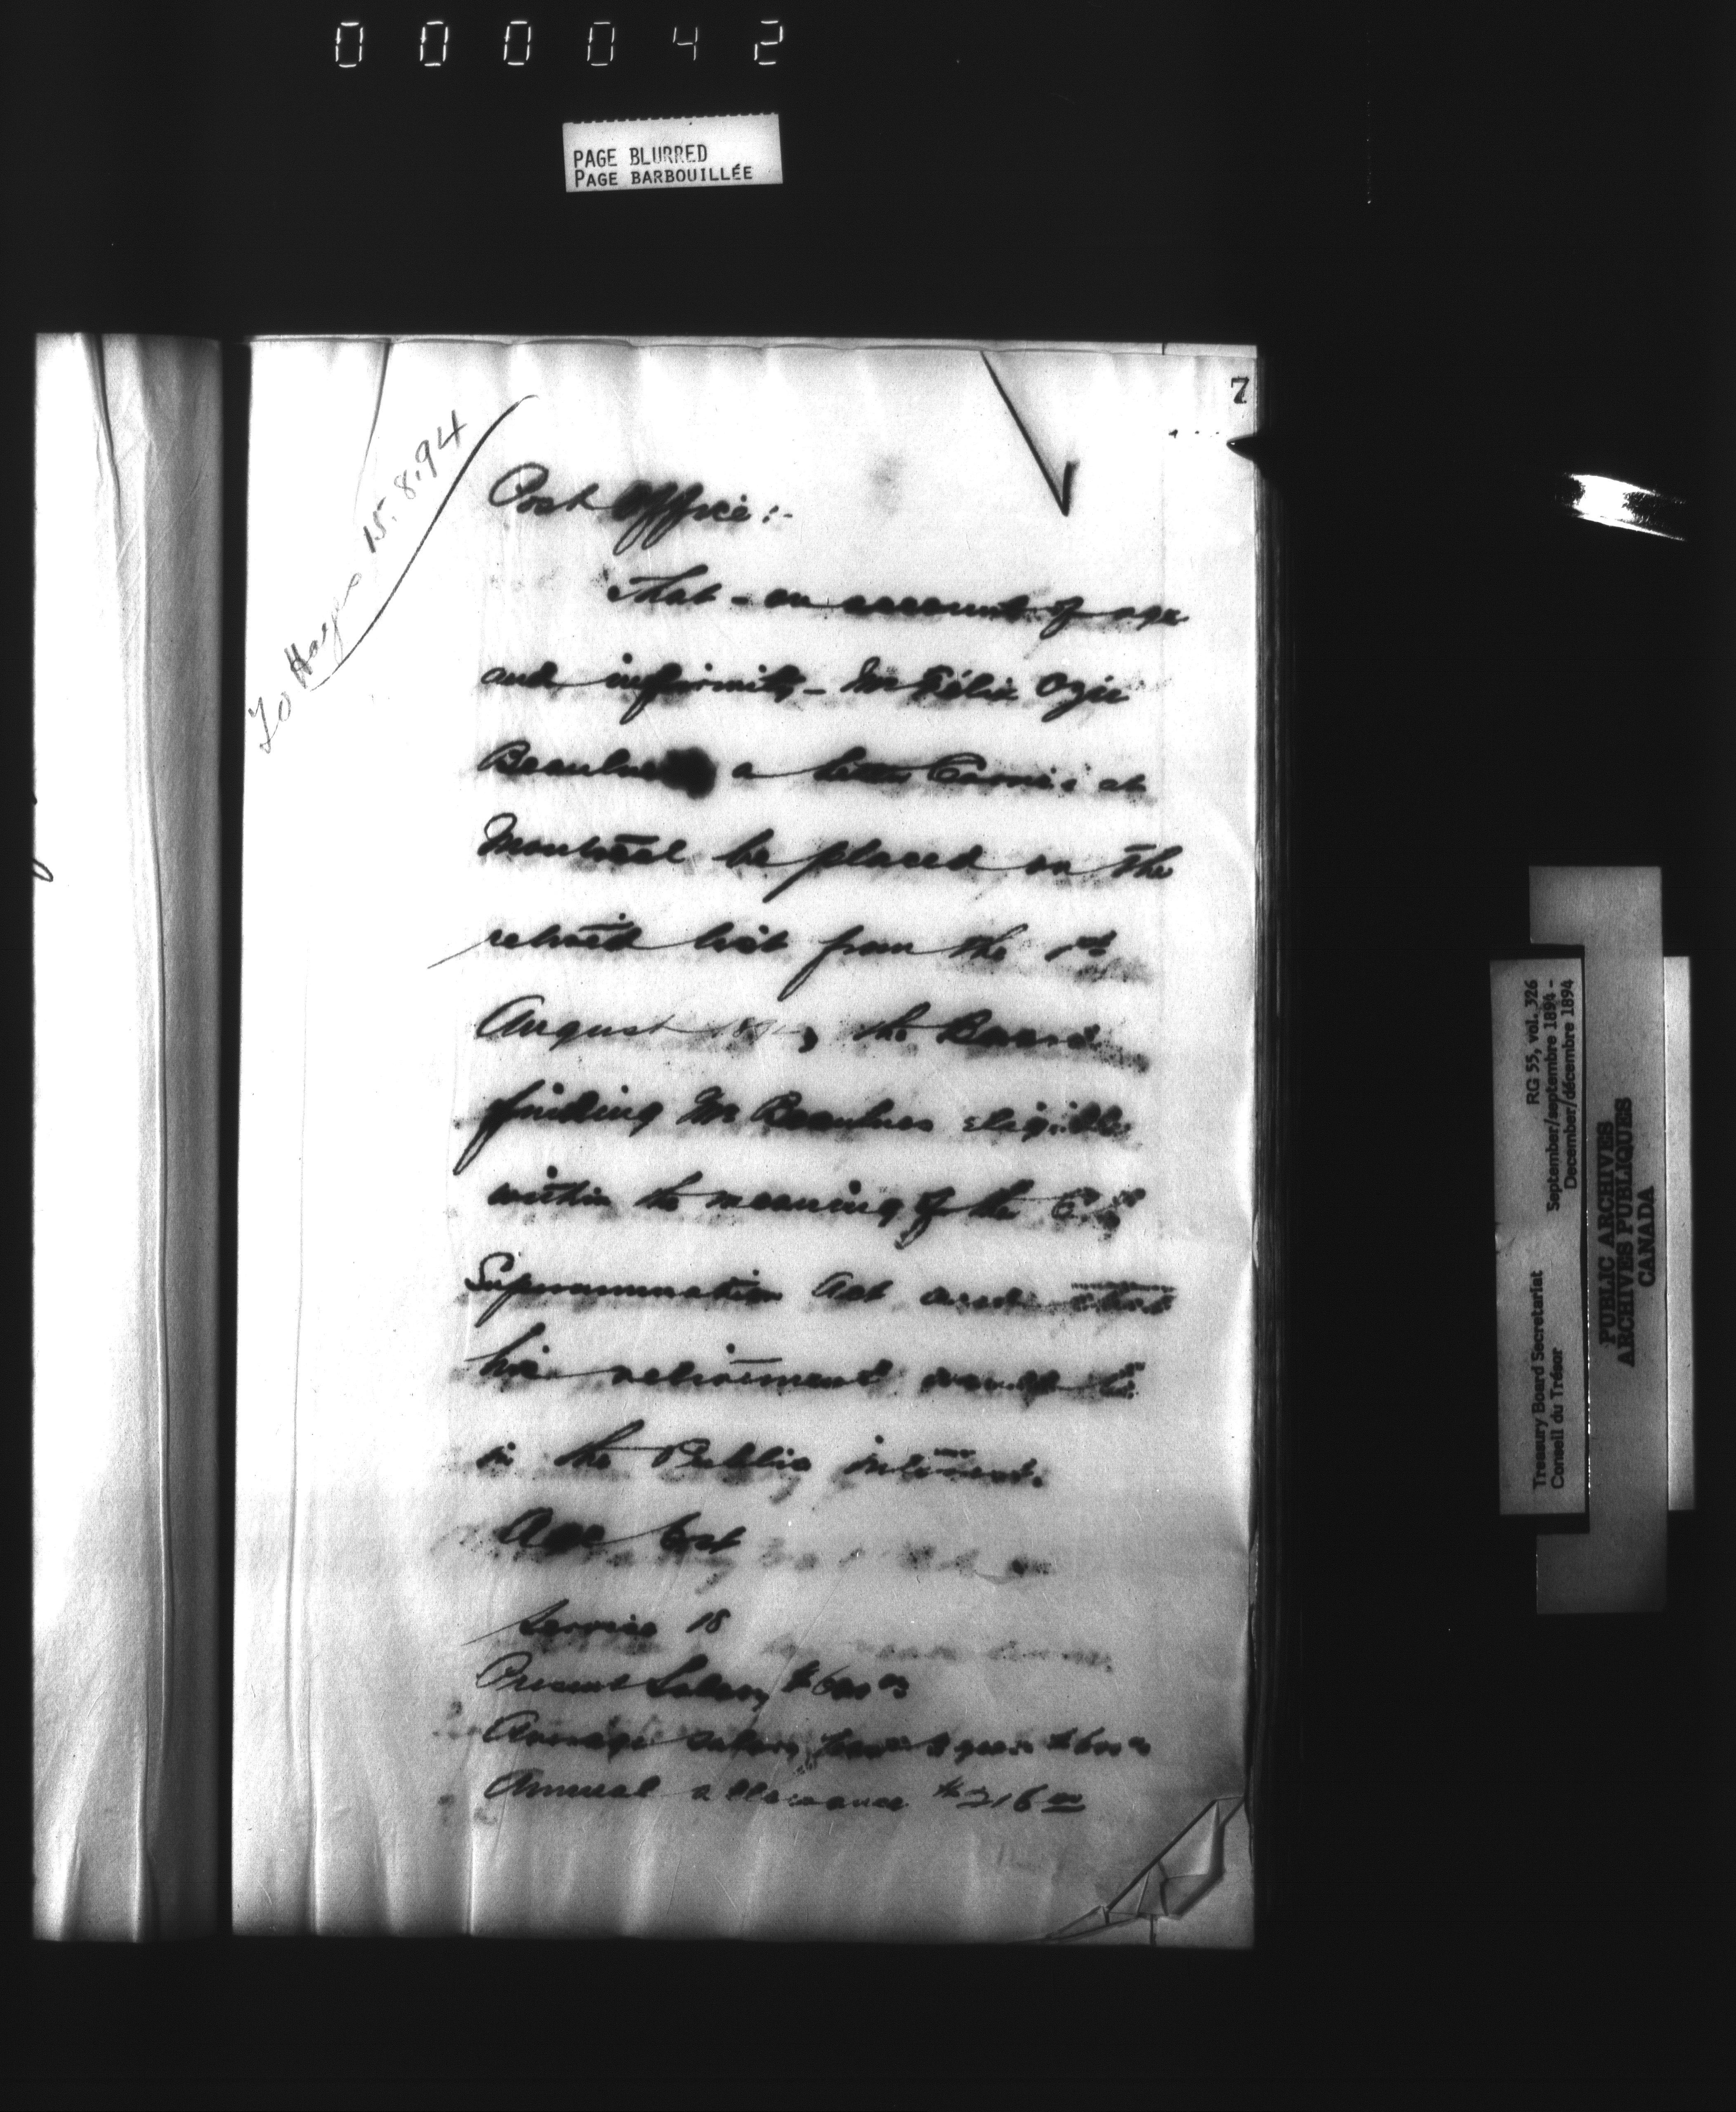 000042
PAGE BLURRED
PAGE BARBOUILLÉE
7
15.8.94
Post Office :-
That - on account of age
and infirmity - Mr Félix Ozié
a Letter Carrier at
Montreal be placed on the
retired list from the 1st
August the Board
finding Mr Beaulnes eligible
within the meaning of the C. S.
Superannuation Act and that
his retirement would be
in the Public interest.
Age
Service 18
Present Salary $600 00
Average salary 3 years $600 00
Annual allowance $216 00
Treasury Board Secretariat RG 55, vol. 326
Conseil du Trésor September/septembre 1894 -
December/décembre 1894
PUBLIC ARCHIVES
ARCHIVES PUBLIQUES
CANADA